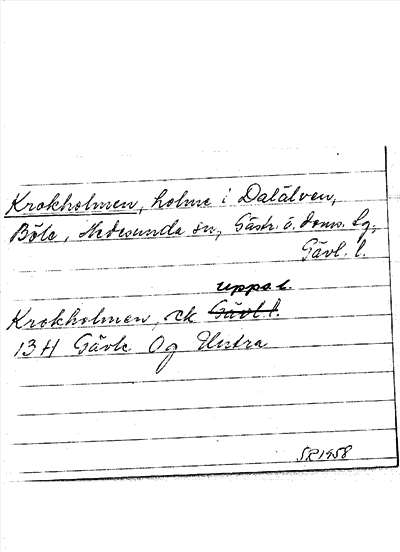 Krokholmen, holme i Dalälven,
Böle, Hedesunda sn, Gästr. ö. doms. lg.,
Gävl. l.
Uppsal
Krokholmen, ek Gävl. l.
13H Gävle Og Elvtra
SR 1958